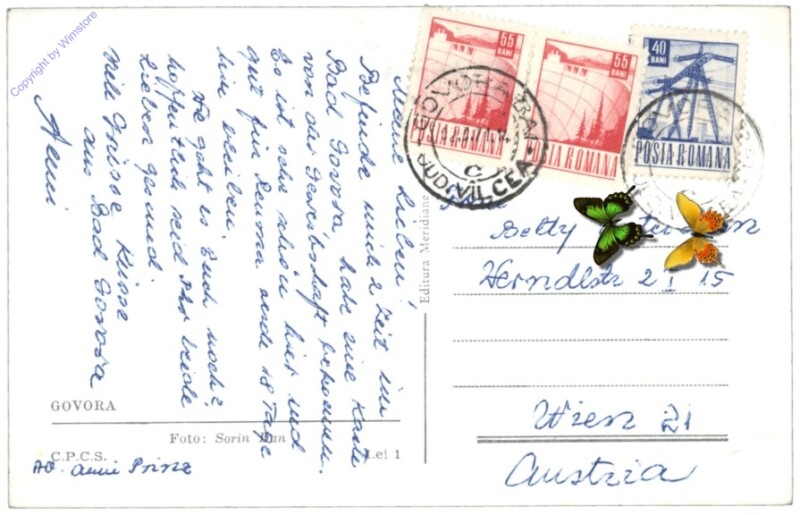 Copyright by Wimstore
Meine Lieben!
Befinde mich z Zeit in
Bad Govora, habe eine Karte
von der Gewerkschaft bekommen.
Es ist sehr schön hier und
gut für Reuma werde 18 Tage
hier bleiben.
Wie geht es Euch noch?
hoffentlich seid Ihr beide
Lieben gesund.
Viele Grüsse Küsse
aus Bad Govora
Anni
GOVORA
Foto: Sorin Dan
C.P.C.S.
Lei 1
Abs. Anni Prinz
Editura Meridiane
55
BANI
POSTA ROMANA
55
BANI
POSTA ROMANA
40
BANI
POSTA ROMANA
GOVORA BAI
JUD. VILCEA
Betty
Werndlstr 2 I 15
Wien 21
Austria